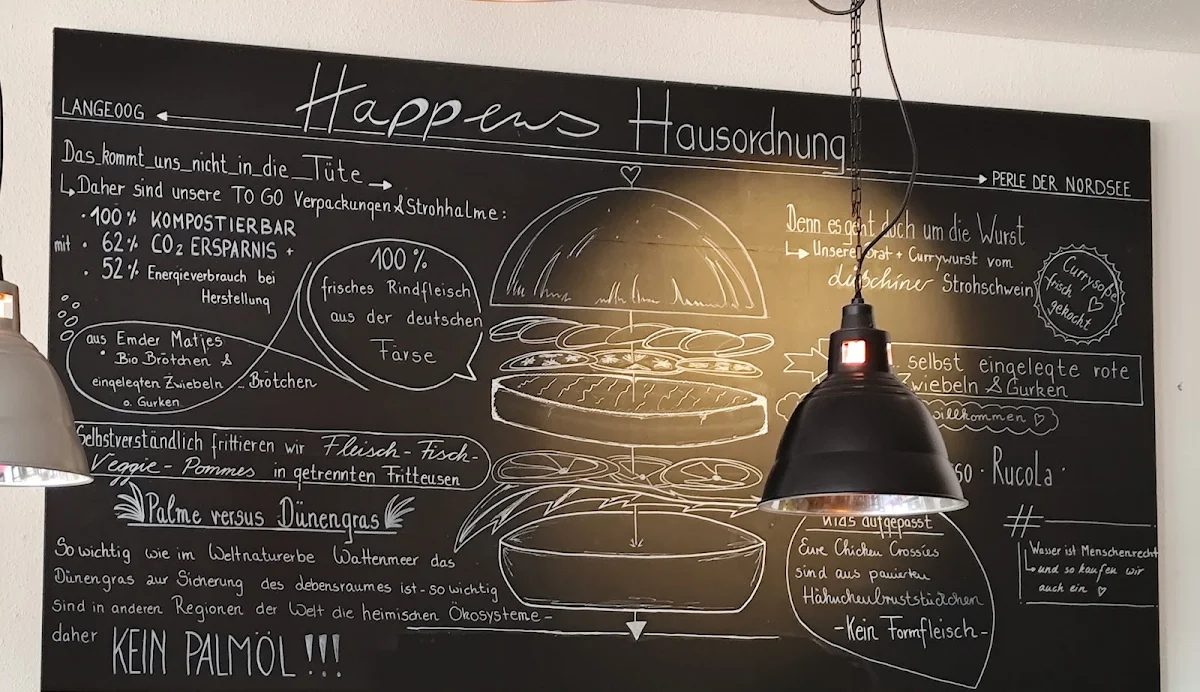 Happens Hausordnung
LANGEOOG
PERLE DER NORDSEE
Das kommt uns nicht in die Tüte
Daher sind unsere TO GO Verpackungen & Strohhalme:
· 100 % KOMPOSTIERBAR
mit · 62 % CO2 ERSPARNIS +
· 52 % Energieverbrauch bei
Herstellung
100 %
frisches Rindfleisch
aus der deutschen
Färse
aus Emder Matjes
Bio Brötchen &
eingelegten Zwiebeln
o. Gurken
Brötchen
Selbstverständlich frittieren wir Fleisch - Fisch -
Veggie - Pommes in getrennten Fritteusen
Palme versus Dünengras
So wichtig wie im Weltnaturerbe Wattenmeer das
Dünengras zur Sicherung des debensraumes ist - so wichtig
sind in anderen Regionen der Welt die heimischen Ökosysteme -
daher KEIN PALMÖL !!!
Denn es geht doch um die Wurst
Unsere Brat + Currywurst vom
Strohschwein
Currysoße
frisch
gekocht
selbst eingelegte rote
Zwiebeln & Gurken
willkommen
· Rucola ·
Kids aufgepasst
Eure Chicken Crossies
sind aus panierten
Hähnchenbruststückchen
- Kein Formfleisch -
#
Wasser ist Menschenrecht
und so kaufen wir
auch ein